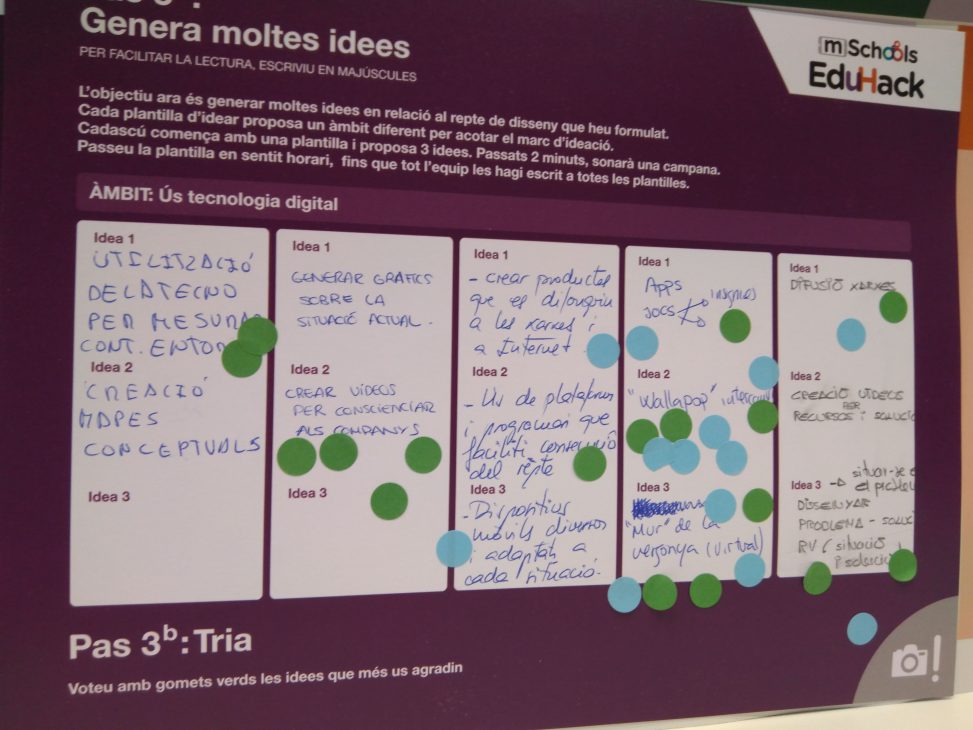 Genera moltes idees
PER FACILITAR LA LECTURA, ESCRIVIU EN MAJÚSCULES
mSchools
EduHack
L'objectiu ara és generar moltes idees en relació al repte de disseny que heu formulat.
Cada plantilla d'idear proposa un àmbit diferent per acotar el marc d'ideació.
Cadascú comença amb una plantilla i proposa 3 idees. Passats 2 minuts, sonarà una campana.
Passeu la plantilla en sentit horari, fins que tot l'equip les hagi escrit a totes les plantilles.
ÀMBIT: Ús tecnologia digital
Idea 1
UTILITZACIÓ
DE LA TECNO
PER MESURAR
CONT. ENTORN
Idea 2
CREACIÓ
MAPES
CONCEPTUALS
Idea 3
Idea 1
GENERAR GRÀFICS
SOBRE LA
SITUACIÓ ACTUAL.
Idea 2
CREAR VÍDEOS
PER CONSCIENCIAR
ALS COMPANYS
Idea 3
Idea 1
- Crear productes
que es difonguin
a les xarxes i
a Internet
Idea 2
- Ús de plataformes
i programari que
faciliti consecució
del repte
Idea 3
- Dispositius
mòbils diversos
i adaptats a
cada situació.
Idea 1
Apps
JOCS
insígnies
Idea 2
"Wallapop"
Idea 3
"Mur" de la
vergonya (virtual)
Idea 1
DIFUSIÓ XARXES
Idea 2
CREACIÓ VIDEOS
PER
RECURSOS i
Idea 3
situar-se
el
DISSENYAR
PROBLEMA -
RV (situació
Pas 3b: Tria
Voteu amb gomets verds les idees que més us agradin